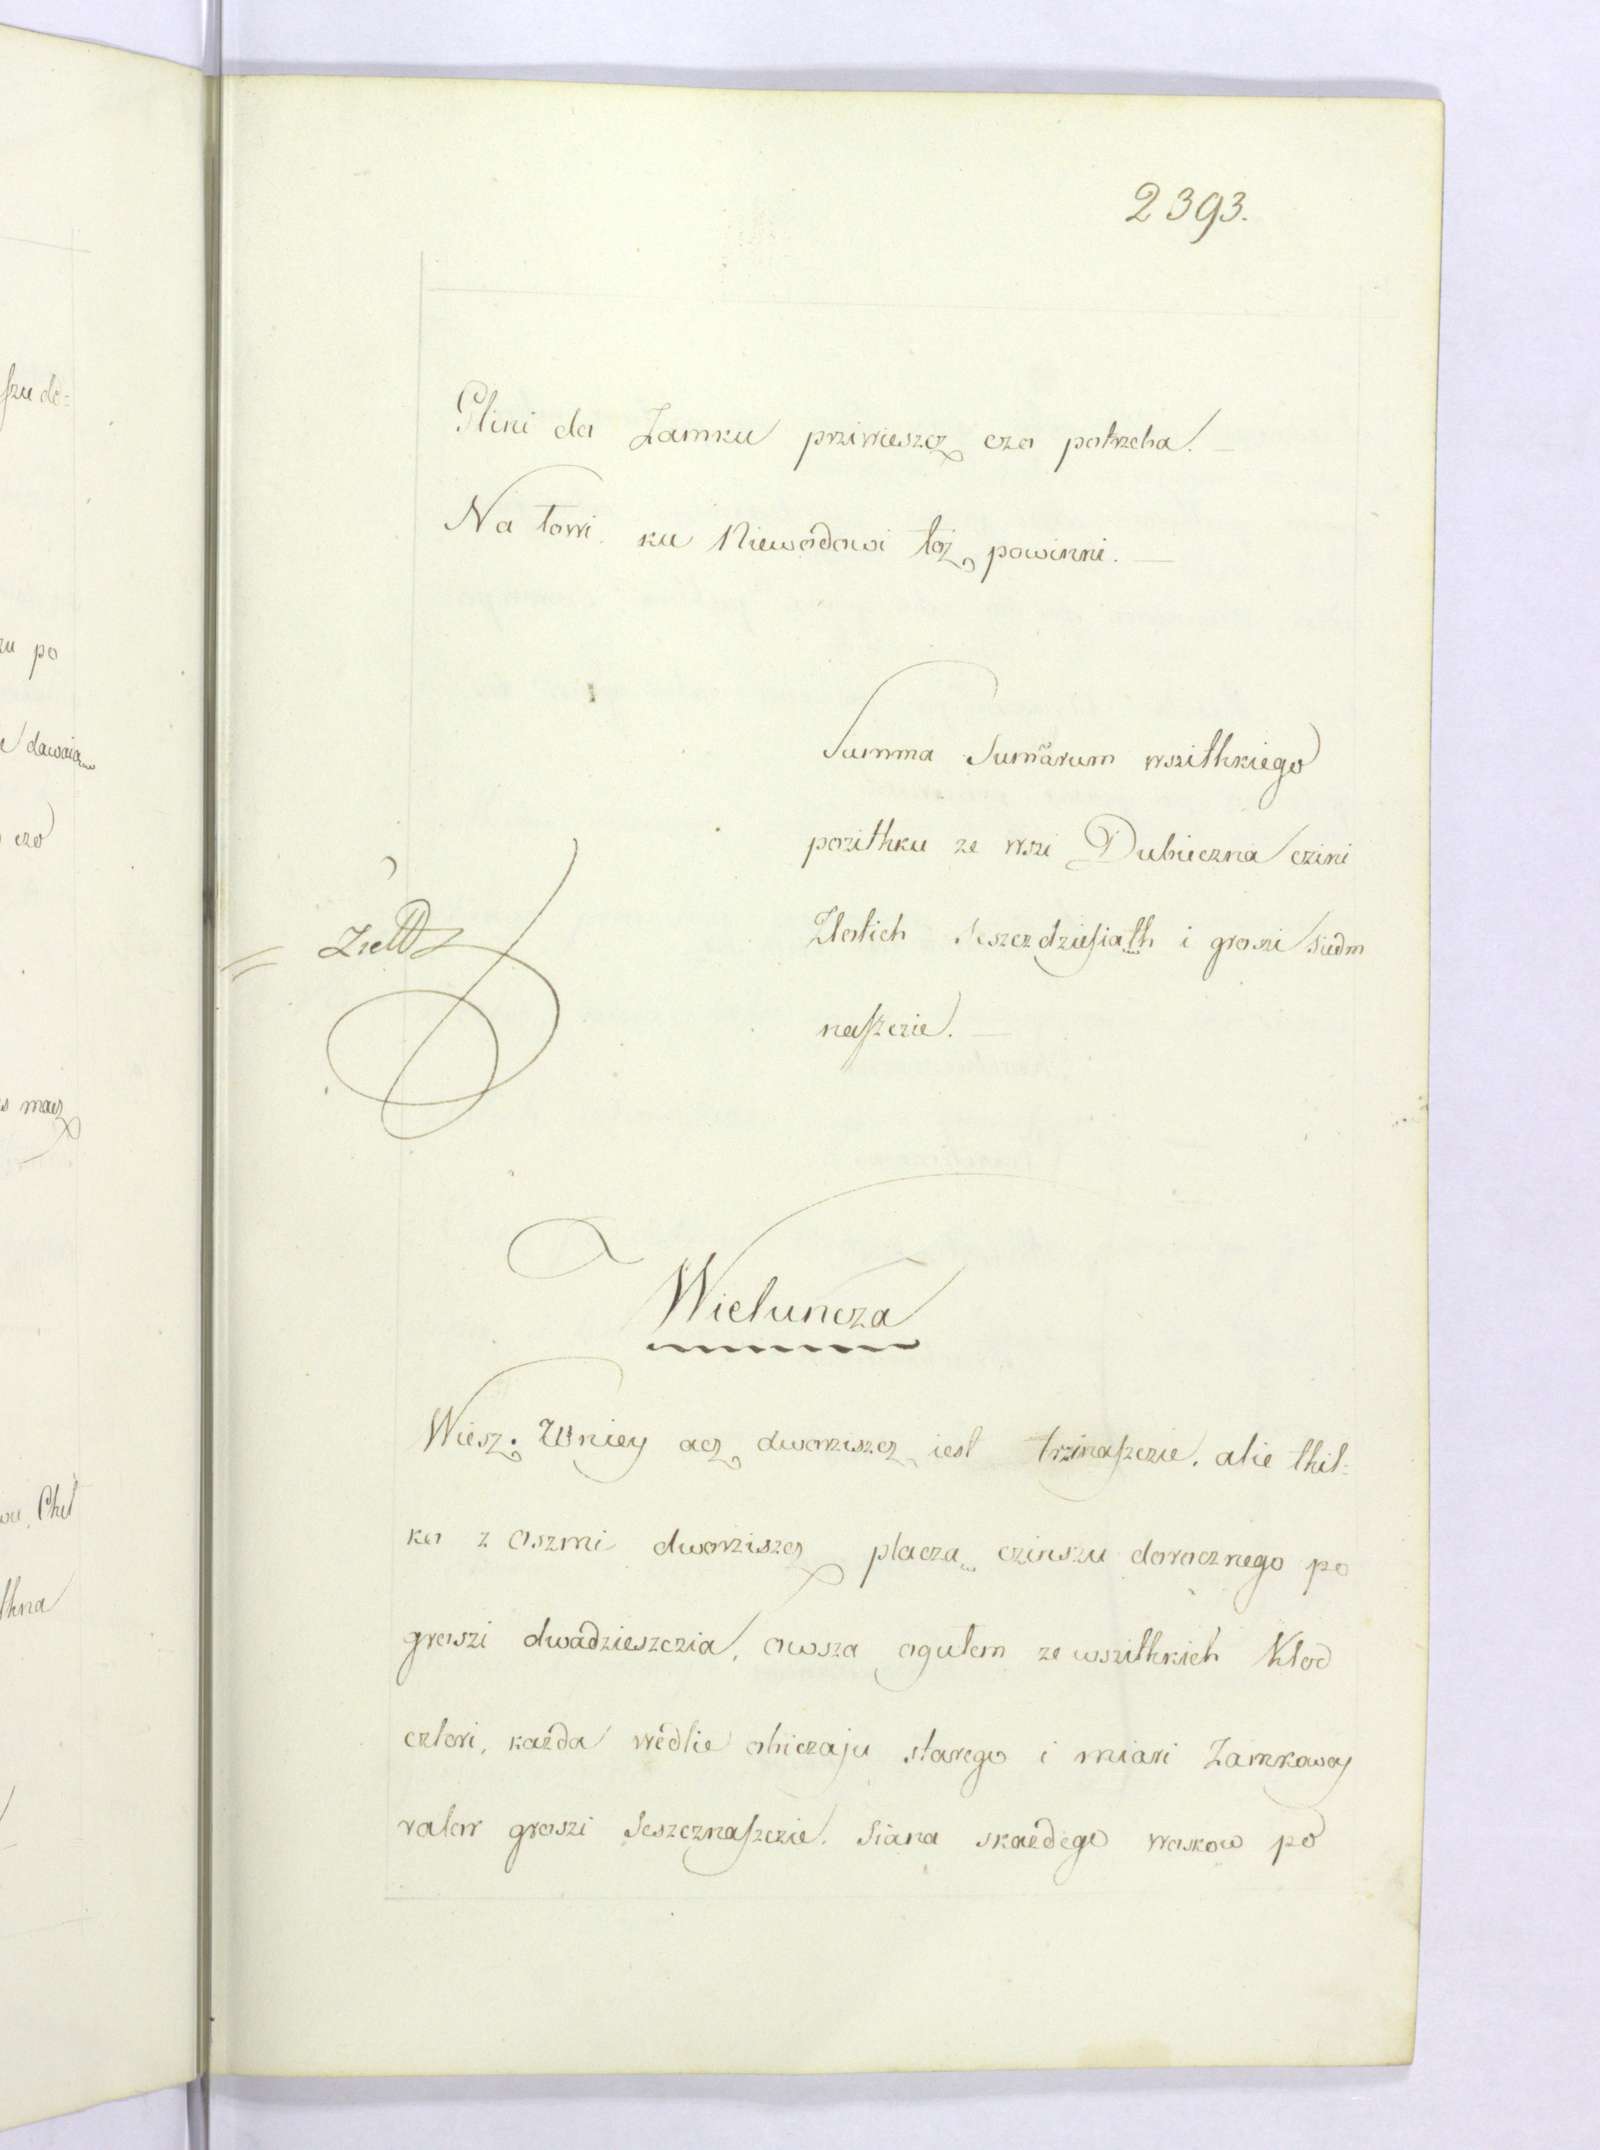 2393.
Glini do Zamku prziwieszcz czo potrzeba.
Na łowi ku Niewodowi toz powinni.
Summa Sumarum wszithkiego
pozithku ze wsi Dubieczna czini
Złotich szesczdziesiąth i groszi siedm
nasczie.
Wieluncza
Wiesz. Wniey acz dworziszcz iest trzinasczie, alie thil-
ko z oszmi dworziszcz płaczą czinszu dorocznego po
groszi dwadzieszczia, owsza ogułem ze wszithkich Kłod
czteri, kazda wedlie obiczaju starego i miari Zamkowey
valor groszi szesznasczie. Siana skazdego woskow po
szu do=
zu po
dawaią
czo
macz
Cheł
thna